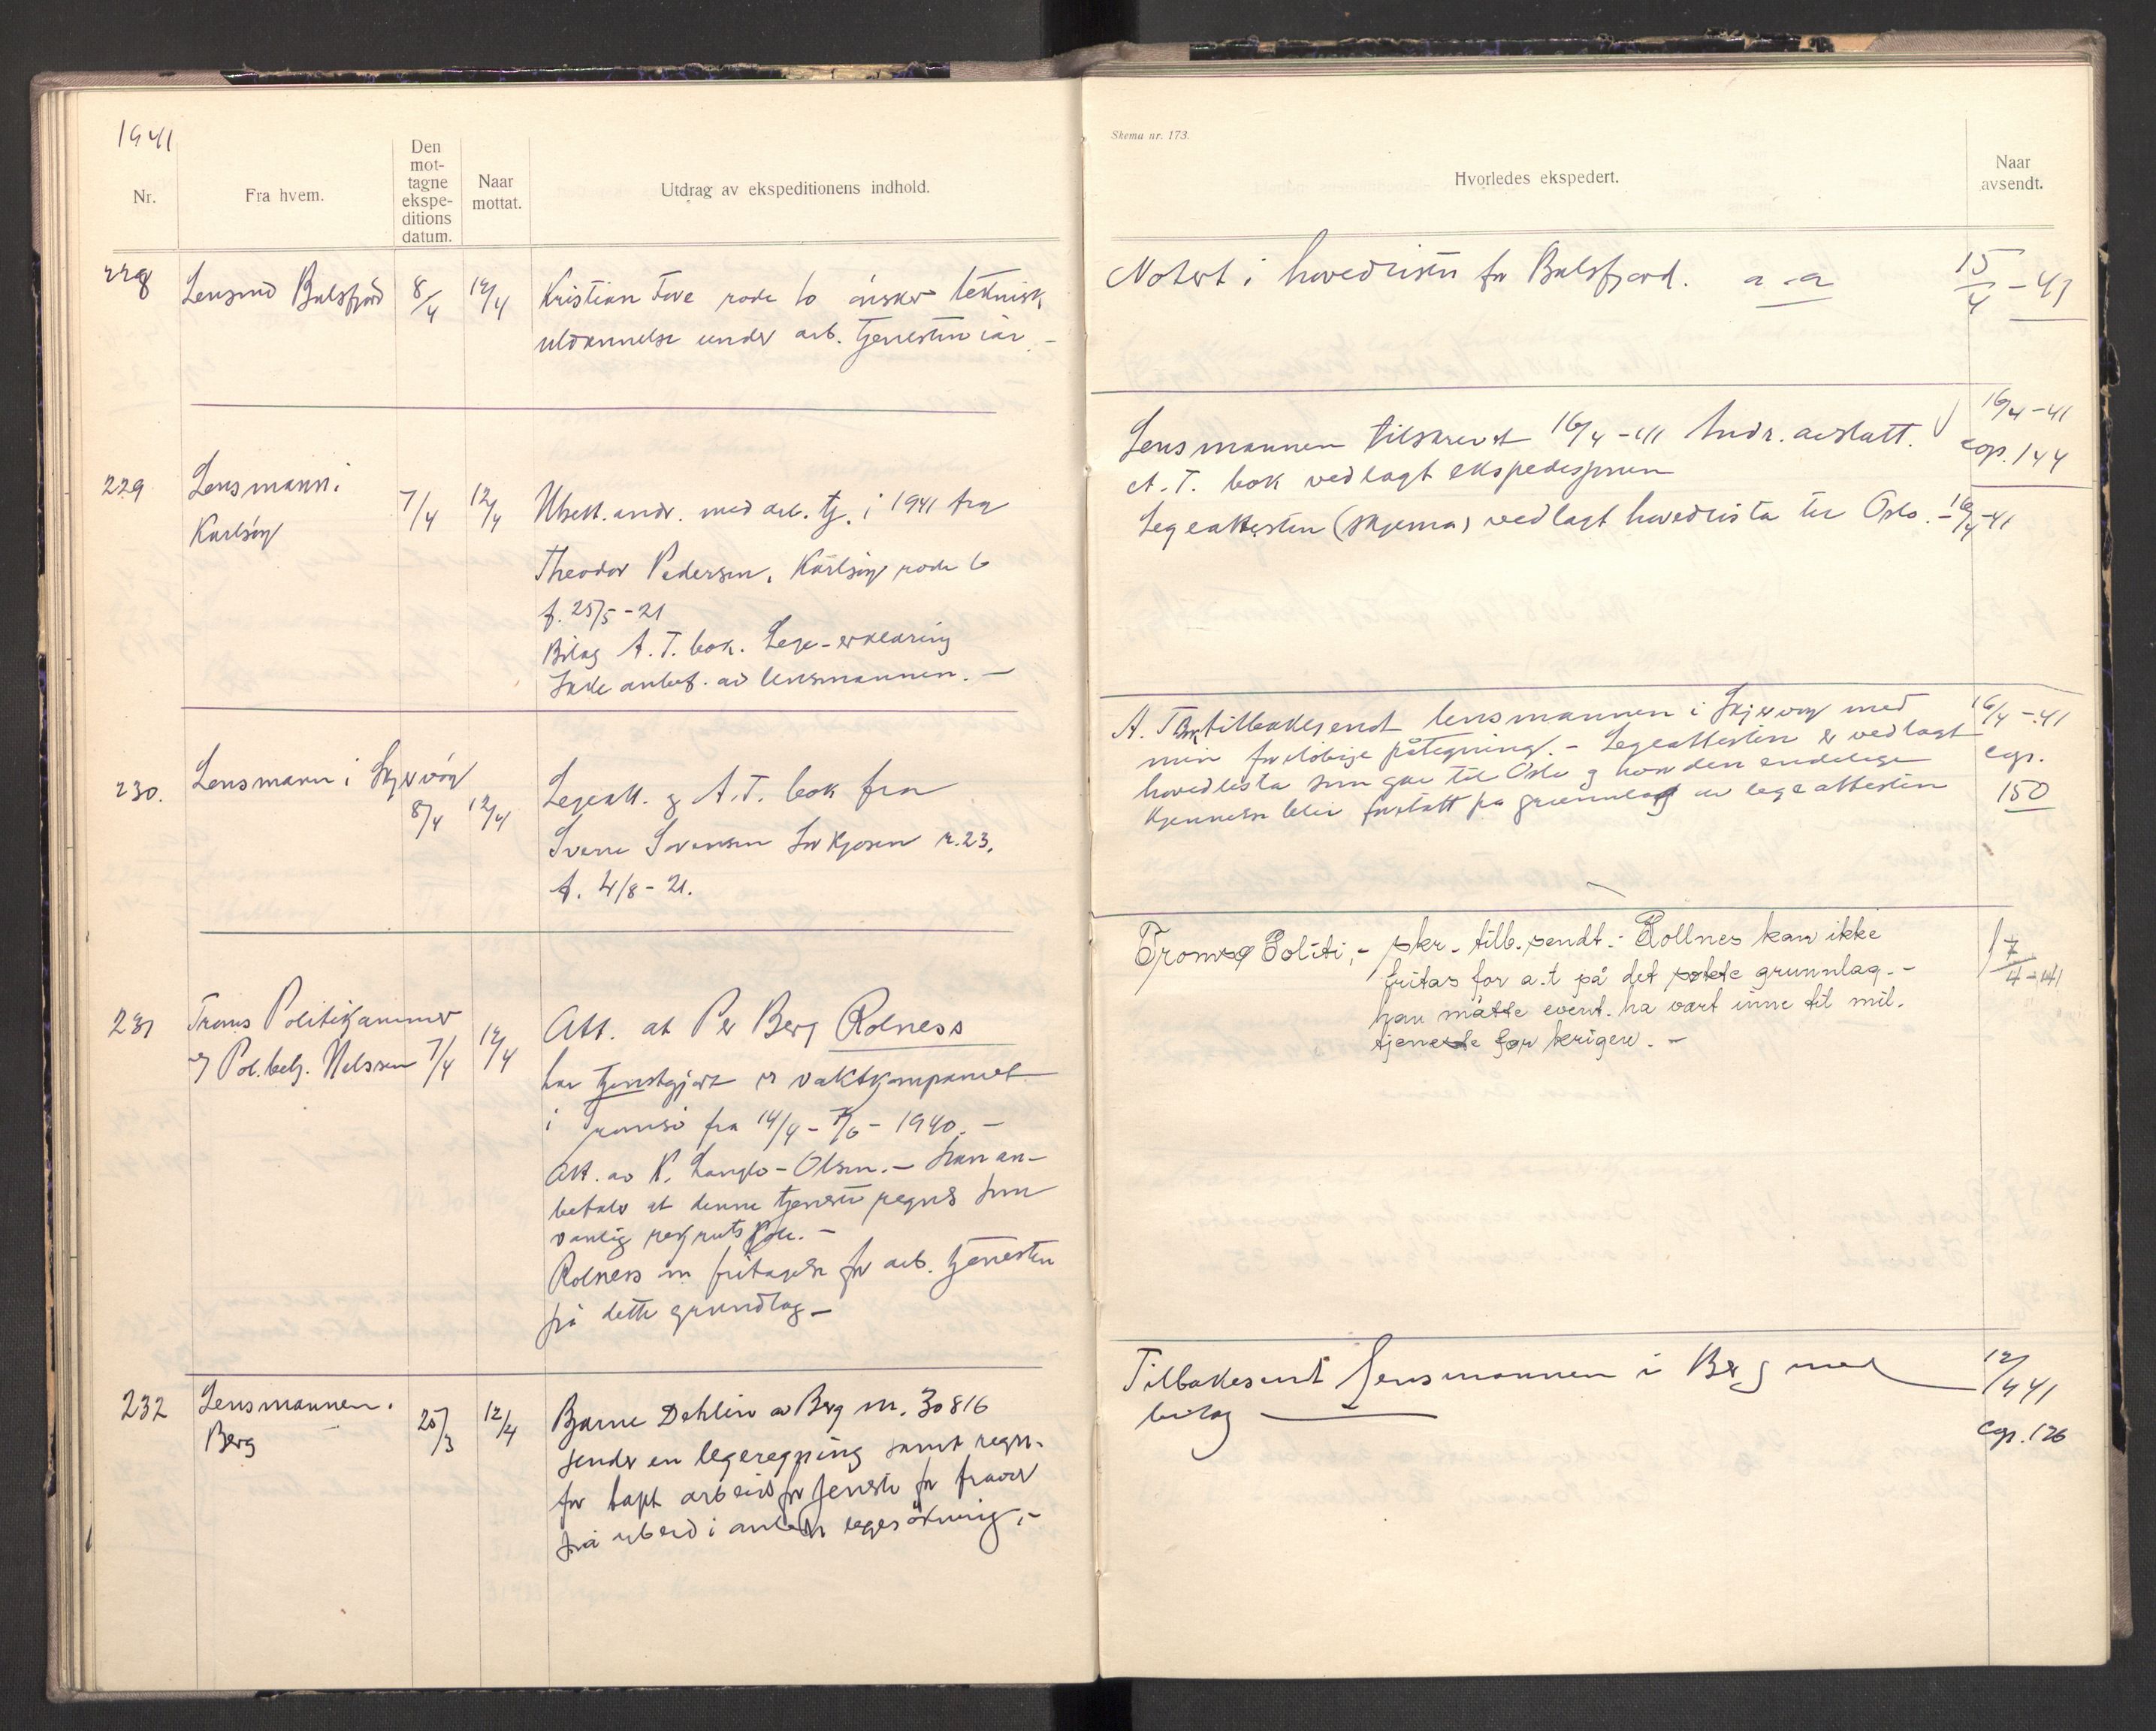 1941
Nr.
Fra hvem.
Den
mot-
tagne
ekspe-
ditions
datum.
Naar
mottat.
Utdrag av ekspeditionens indhold.
228
Lensmd Balsfjord
8/4
12/4
Kristian Tove rode 10 ønsker teknisk
utdannelse under arb. tjenesten i år. -
229
Lensmann i
Karlsöy
7/4
12/4
Utsett. andr. med arb. tj. i 1941 fra
Theodor Pedersen, Karlsöy rode 6
f. 25/5 - 21
Bilag A. T. bok. Lege-erklæring
Ikke anbef. av lensmannen. -
230.
Lensmann i Skjervöy
8/4
12/4
Legeatt. og A.T. bok fra
Sverre Sørensen Sørkjosen r. 23.
f. 4/8 - 21.
231
Troms Politikammer
v/ Pol. betj. Nilssen
7/4
12/4
Att. at Per Berg Rolness
har tjenstgjort i vaktkompaniet
i Tromsö fra 14/4 - 7/6 - 1940. -
Att. av K. Langlo - Olsen. - Han an-
befaler at denne tjeneste regnes som
vanlig rekrutskole. -
Rolness om fritagelse for arb. tjenesten
på dette grundlag -
232
Lensmannen i
Berg
25/3
12/4
Bjarne Dehlin av Berg m. 30816
sender en legeregning samt regn.
for tapt arbeidsfortjeneste for fravær
fra arbeid i anledn legesökning. -
Skema nr. 173.
Hvorledes ekspedert.
Naar
avsendt.
Notert i hovedlisten for Balsfjord. a - a
15/4 - 41
Lensmannen tilskrevet 16/4 - 41 Andr. avslått.
16/4 - 41
A. T. bok vedlagt ekspedisjonen
cop. 144
Legeattesten (skjema) vedlagt hovedlista til Oslo. - 16/4 - 41
A. T. Bok tilbakesendt lensmannen i Skjervöy med
16/4 - 41
min foreløbige påtegning. - Legeattesten er vedlagt
cop.
hovedlista som går til Oslo og hvor den endelige
150
kjennelse blir fastatt på grunnlag av legeattesten
Tromsø Politi, - skr. tilb. sendt. - Rollnes kan ikke
17/4 - 41
fritas for a.t på det søkte grunnlag. -
han måtte event. ha vært inne til mil.
tjeneste før krigen. -
Tilbakesent Lensmannen i Berg med
12/4 41
bilag
cop. 126